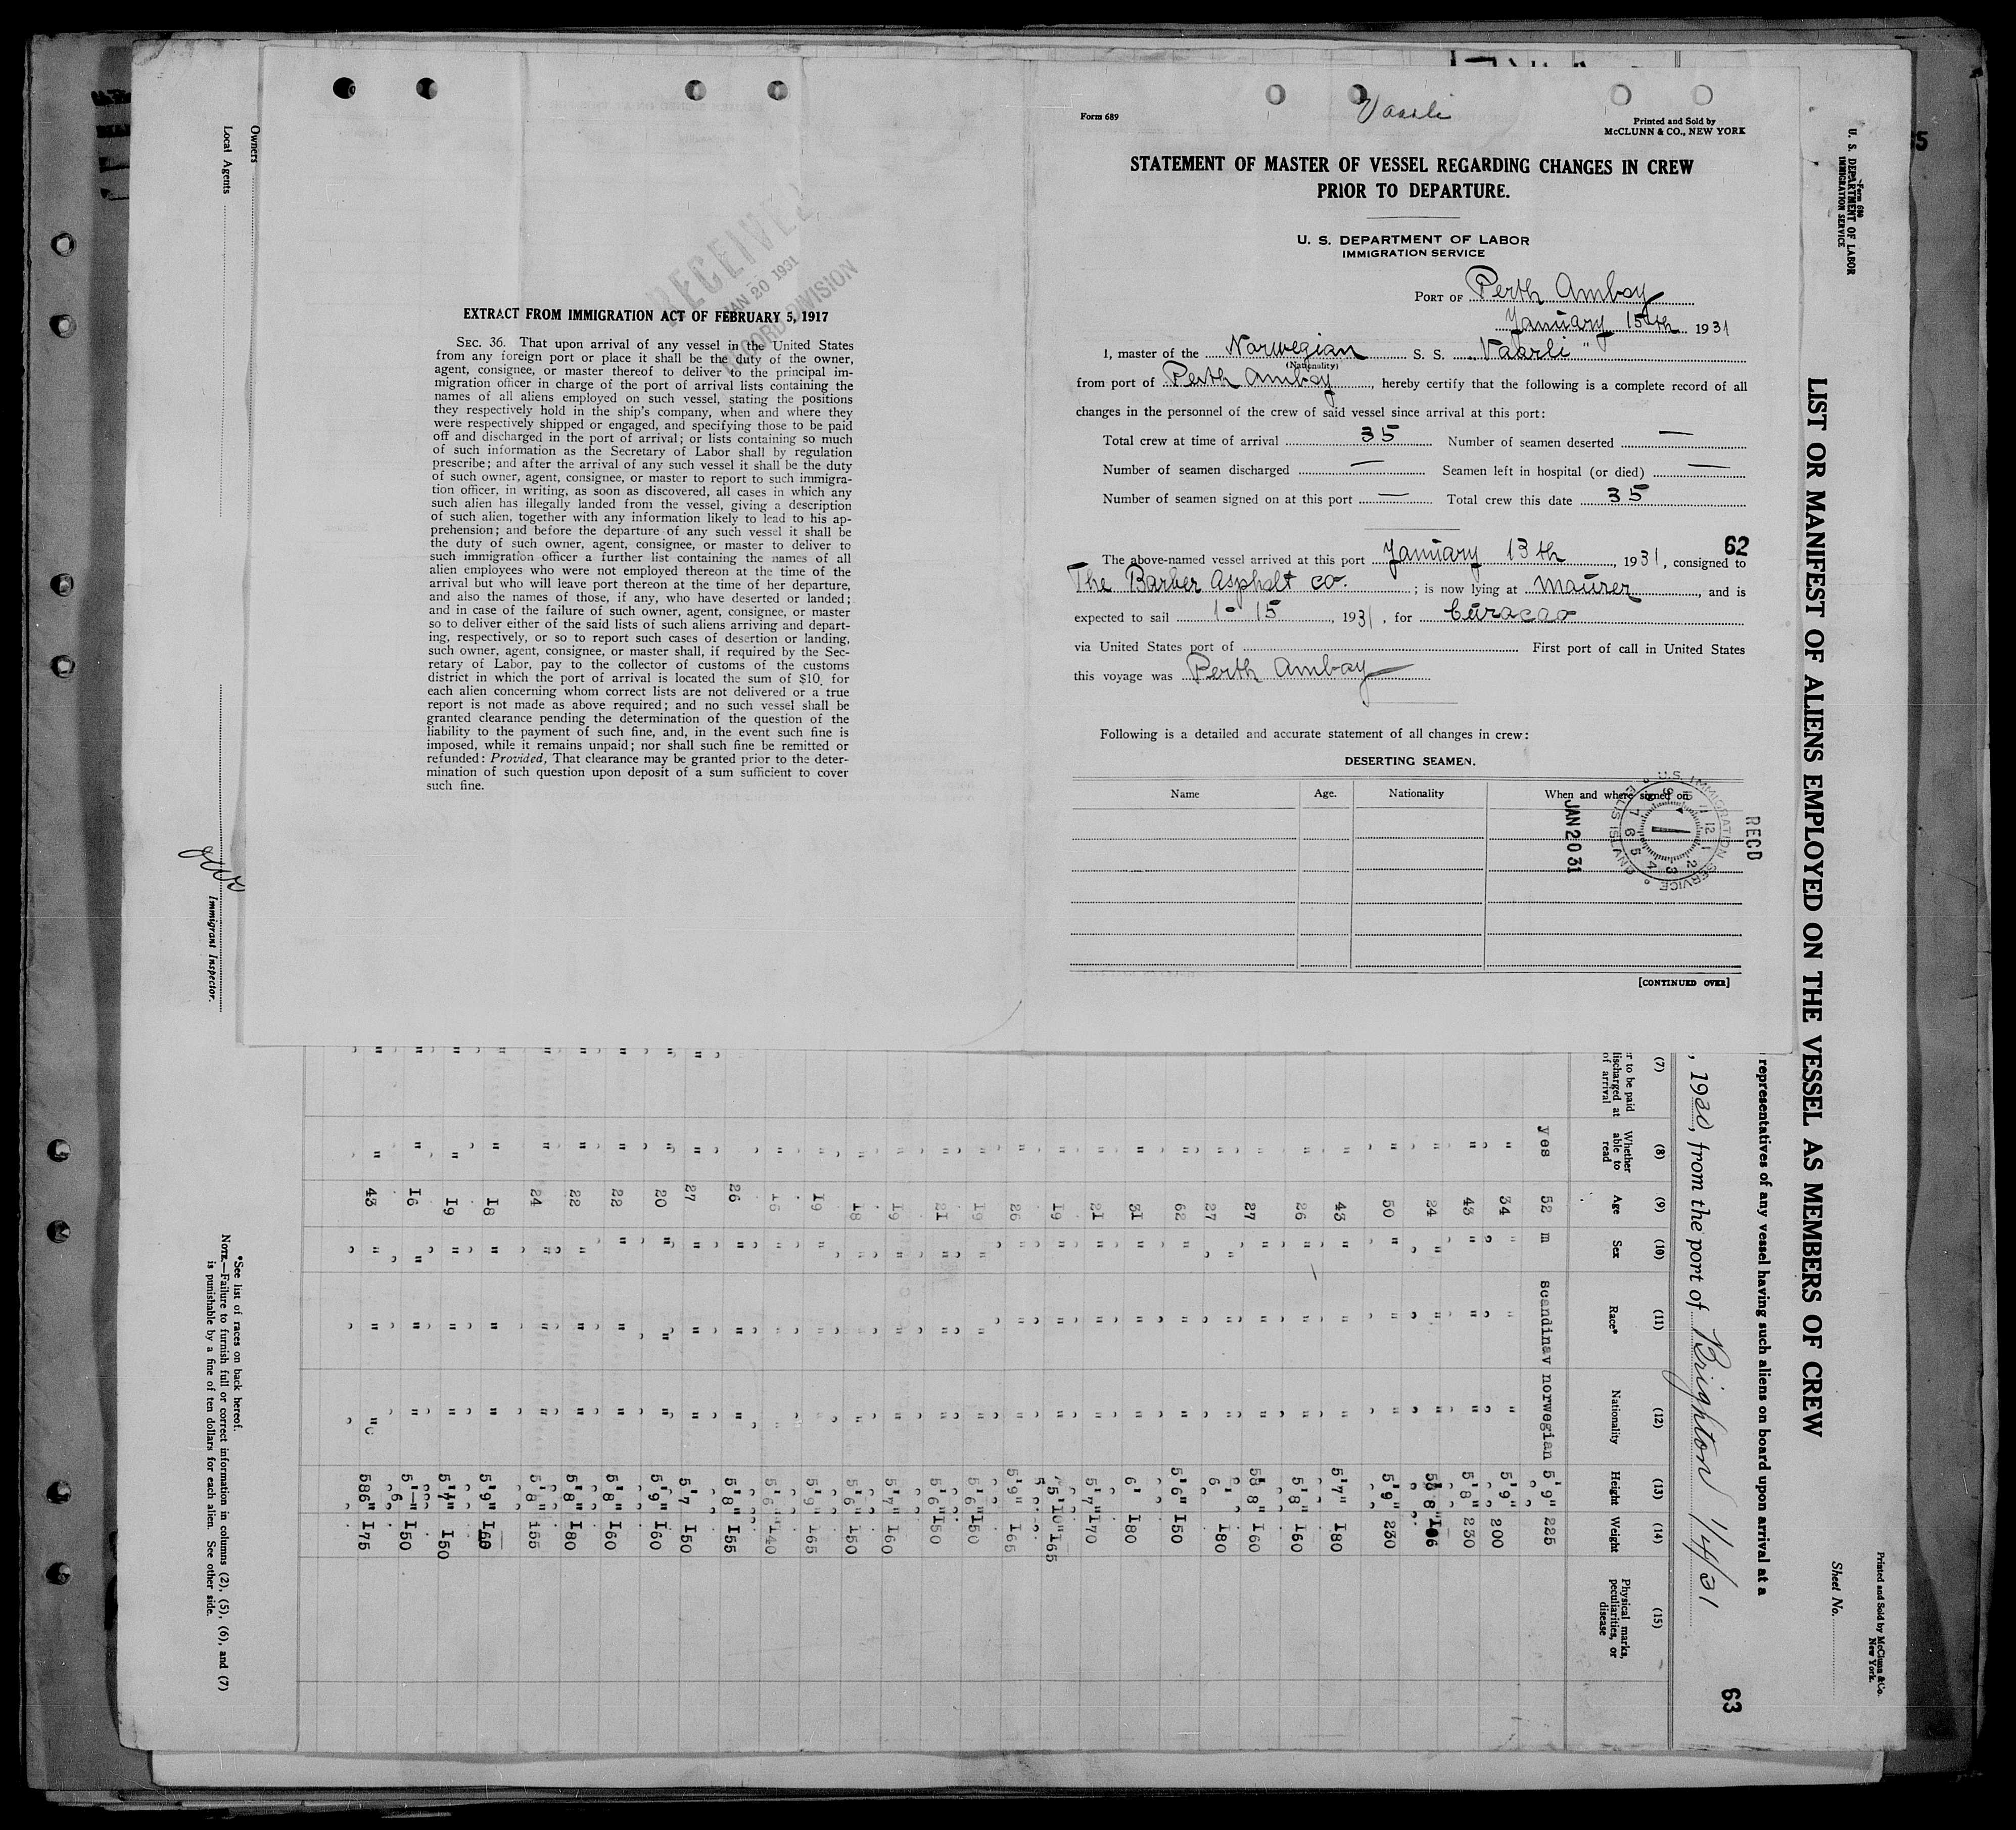 Form 689
Vaarli
Printed and Sold by
McCLUNN & CO., NEW YORK
STATEMENT OF MASTER OF VESSEL REGARDING CHANGES IN CREW
PRIOR TO DEPARTURE.
U. S. DEPARTMENT OF LABOR
IMMIGRATION SERVICE
PORT OF Perth Amboy
January 15th 1931
I, master of the Norwegian S. S. "Vaarli"
(Nationality)
from port of Perth Amboy, hereby certify that the following is a complete record of all
changes in the personnel of the crew of said vessel since arrival at this port:
Total crew at time of arrival 35 Number of seamen deserted —
Number of seamen discharged — Seamen left in hospital (or died) —
Number of seamen signed on at this port — Total crew this date 35
62
The above-named vessel arrived at this port January 13th, 1931, consigned to
The Barber Asphalt Co.; is now lying at Maurer, and is
expected to sail 1-15, 1931, for Curacao
via United States port of First port of call in United States
this voyage was Perth Amboy
Following is a detailed and accurate statement of all changes in crew:
DESERTING SEAMEN.
Name Age. Nationality When and where signed on
U.S. IMMIGRATION SERVICE
ELLIS ISLAND
REC'D
JAN 20 31
[CONTINUED OVER]
RECEIVED
JAN 20 1931
RECORD DIVISION
EXTRACT FROM IMMIGRATION ACT OF FEBRUARY 5, 1917
SEC. 36. That upon arrival of any vessel in the United States
from any foreign port or place it shall be the duty of the owner,
agent, consignee, or master thereof to deliver to the principal im-
migration officer in charge of the port of arrival lists containing the
names of all aliens employed on such vessel, stating the positions
they respectively hold in the ship's company, when and where they
were respectively shipped or engaged, and specifying those to be paid
off and discharged in the port of arrival; or lists containing so much
of such information as the Secretary of Labor shall by regulation
prescribe; and after the arrival of any such vessel it shall be the duty
of such owner, agent, consignee, or master to report to such immigra-
tion officer, in writing, as soon as discovered, all cases in which any
such alien has illegally landed from the vessel, giving a description
of such alien, together with any information likely to lead to his ap-
prehension; and before the departure of any such vessel it shall be
the duty of such owner, agent, consignee, or master to deliver to
such immigration officer a further list containing the names of all
alien employees who were not employed thereon at the time of the
arrival but who will leave port thereon at the time of her departure,
and also the names of those, if any, who have deserted or landed;
and in case of the failure of such owner, agent, consignee, or master
so to deliver either of the said lists of such aliens arriving and depart-
ing, respectively, or so to report such cases of desertion or landing,
such owner, agent, consignee, or master shall, if required by the Sec-
retary of Labor, pay to the collector of customs of the customs
district in which the port of arrival is located the sum of $10 for
each alien concerning whom correct lists are not delivered or a true
report is not made as above required; and no such vessel shall be
granted clearance pending the determination of the question of the
liability to the payment of such fine, and, in the event such fine is
imposed, while it remains unpaid; nor shall such fine be remitted or
refunded: Provided, That clearance may be granted prior to the deter-
mination of such question upon deposit of a sum sufficient to cover
such fine.
Form 680
U. S. DEPARTMENT OF LABOR
IMMIGRATION SERVICE
Printed and Sold by McClunn & Co.
New York.
Sheet No.
LIST OR MANIFEST OF ALIENS EMPLOYED ON THE VESSEL AS MEMBERS OF CREW
representatives of any vessel having such aliens on board upon arrival at a
63
, from the port of Brighton 1/4/31
(7) (8) (9) (10) (11) (12) (13) (14) (15)
r to be paid
discharged at
of arrival
Whether
able to
read
Age
Sex
Race*
Nationality
Height
Weight
Physical marks,
peculiarities, or
disease
yes 52 m scandinav norwegian 5'9" 225
" 34 " " " 5'9" 200
" 43 " " " 5'8" 230
" 24 " " "
" 50 " " " 5'9" 230
" 43 " " " 5'7" 180
" 26 " " " 5'8" 160
" 27 " " " 5'8" 160
" 27 " " " 6' 180
" 62 " " " 5'6" 150
" 31 " " " 6' 180
" 21 " " " 5'7" 170
" 19 " " " 5'10" 165
" 26 " " " 5'9" 165
" 19 " " " 5'6" 150
" 21 " " " 5'6" 150
" 19 " " " 5'7" 160
" 18 " " " 5'6" 150
" 19 " " " 5'9" 165
" 16 " " " 5'6" 140
" 26 " " " 5'8" 155
" 27 " " " 5'7 150
" 20 " " " 5'9" 160
" 22 " " " 5'8" 160
" 22 " " " 5'8" 180
" 24 " " " 5'8" 155
" 18 " " " 5'9" 160
" 19 " " " 5'7" 150
" 16 " " " 150
" 43 " " " 175
Owners
Local Agents
Immigrant Inspector.
*See list of races on back hereof.
NOTE.—Failure to furnish full or correct information in columns (2), (5), (6), and (7)
is punishable by a fine of ten dollars for each alien. See other side.